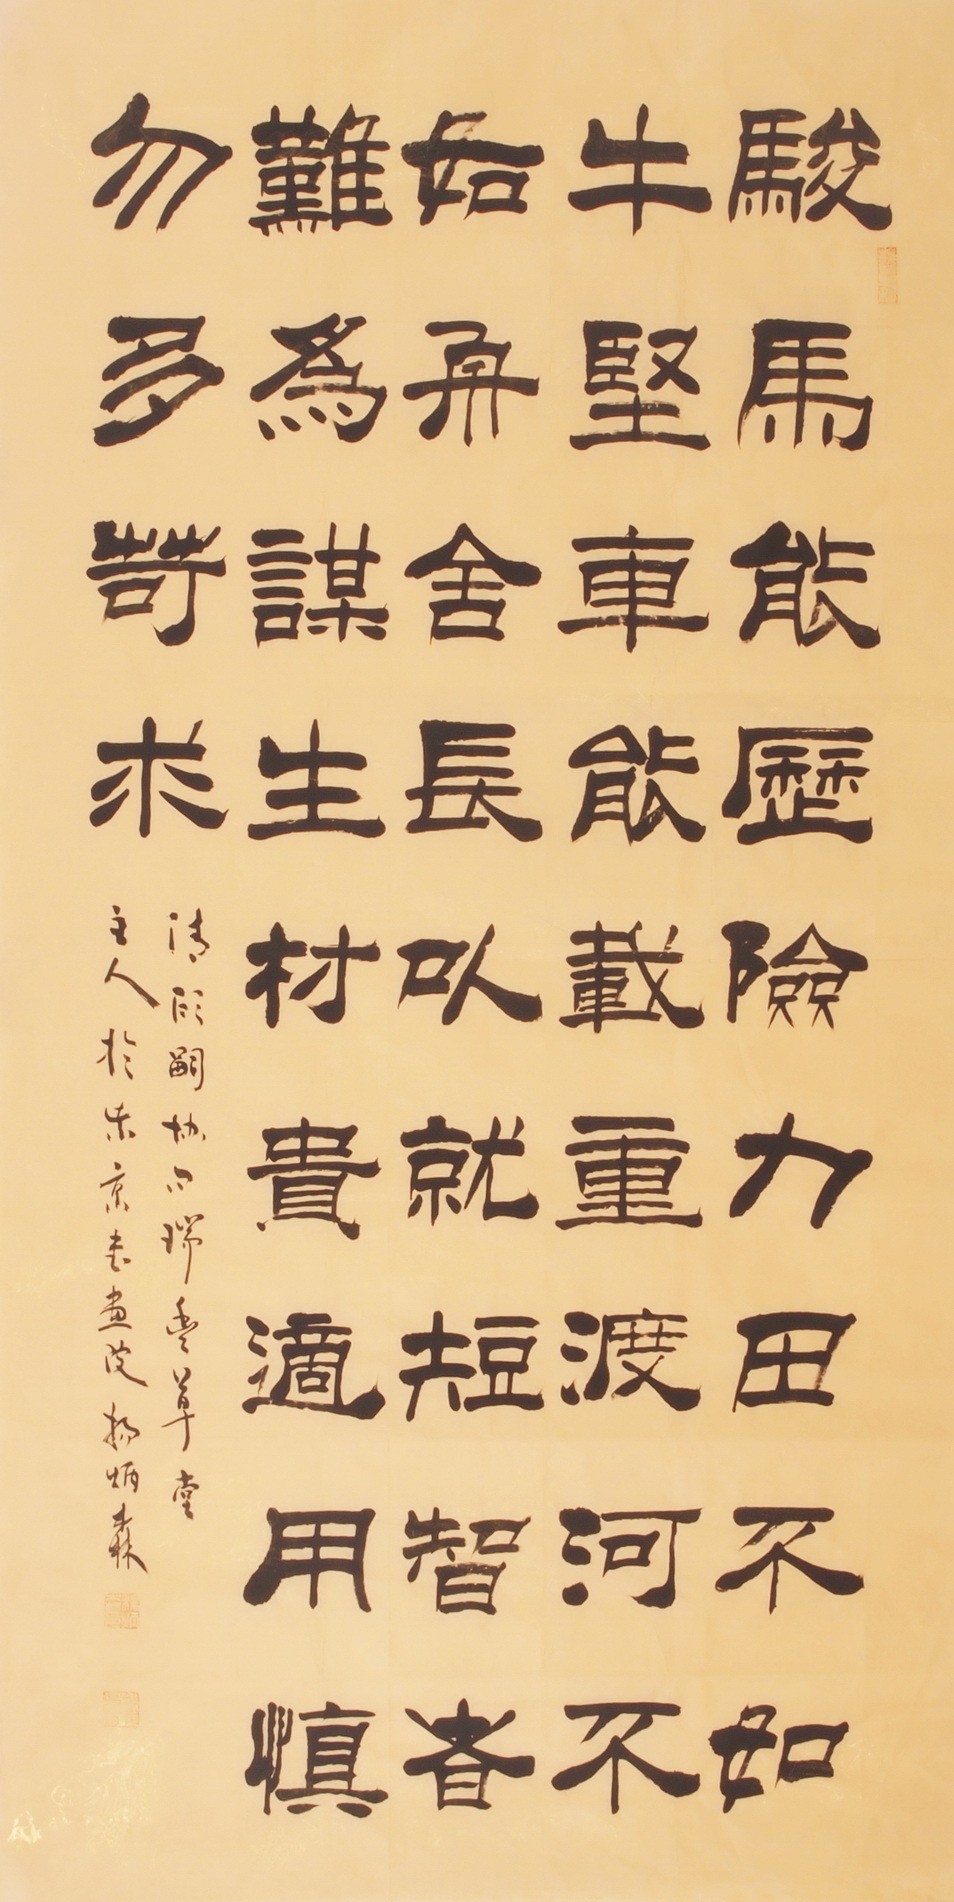 駿馬能歷險力田不如
牛堅車能載重渡河不
如舟舍長以就短智者
難為謀生材貴適用慎
勿多苛求
清顧嗣協詩瑞香草堂
主人於朱京書畫院楊炳森